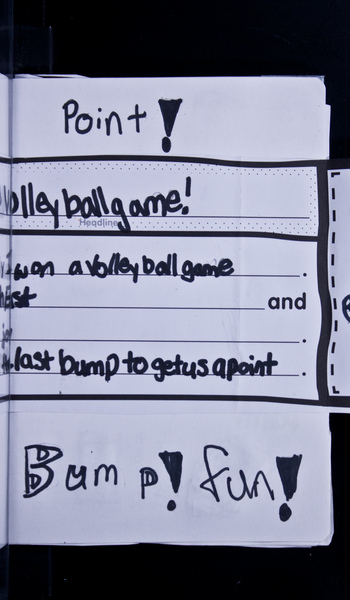 Point!
Volleyball game!
Headline
won a Volleyball game.
and
.
last bump to get us a point.
Bump! fun!